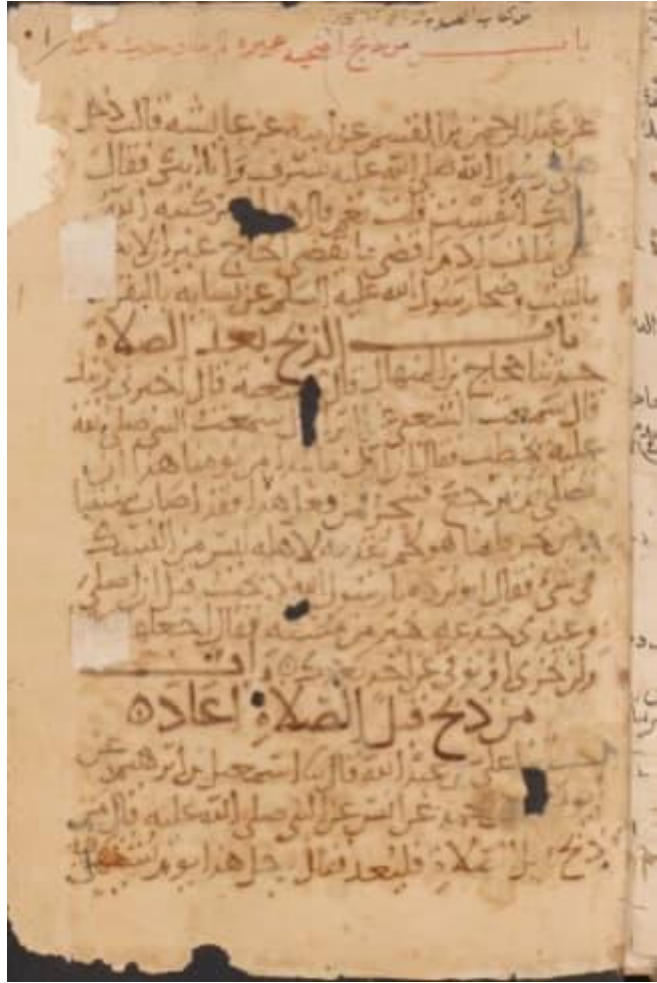 باب من ذبح اضحية غيره
عن عبد الرحمن بن القسم عن ابيه عن عايشه قالت دخل
رسول الله صلى الله عليه بسرف وانا ابكي فقال
مالك انفست قلت نعم قال هذا كتبه الله
ادم اقضي ما يقضي الحاج غير الا
بالبيت وضحا رسول الله عليه السلم عن نسايه بالبقر
باب الذبح بعد الصلاة
حدثنا حجاج بن المنهال قال شعبة قال اخبرني زبيد
قال سمعت الشعبي البرا سمعت النبي صلى الله
عليه يخطب فقال ان اول ما نبدا من يومنا هذا ان
نصلي ثم نرجع فننحر فمن فعل هذا فقد اصاب سنتنا
ومن نحر فانما هو لحم يقدمه لاهله ليس من النسك
في شي فقال ابو برده يا رسول الله ذبحت قبل ان اصلي
وعندي جذعه خير من مسنه فقال اجعلها
ولن تجزي او توفي عن احد بعدك باب
من ذبح قبل الصلاة اعاده
حدثنا علي بن عبد الله قال نا اسمعيل بن ابرهيم عن
ايوب محمد عن انس عن النبي صلى الله عليه قال من
ذبح قبل الصلاة فليعد فقال رجل هذا يوم يشتهى